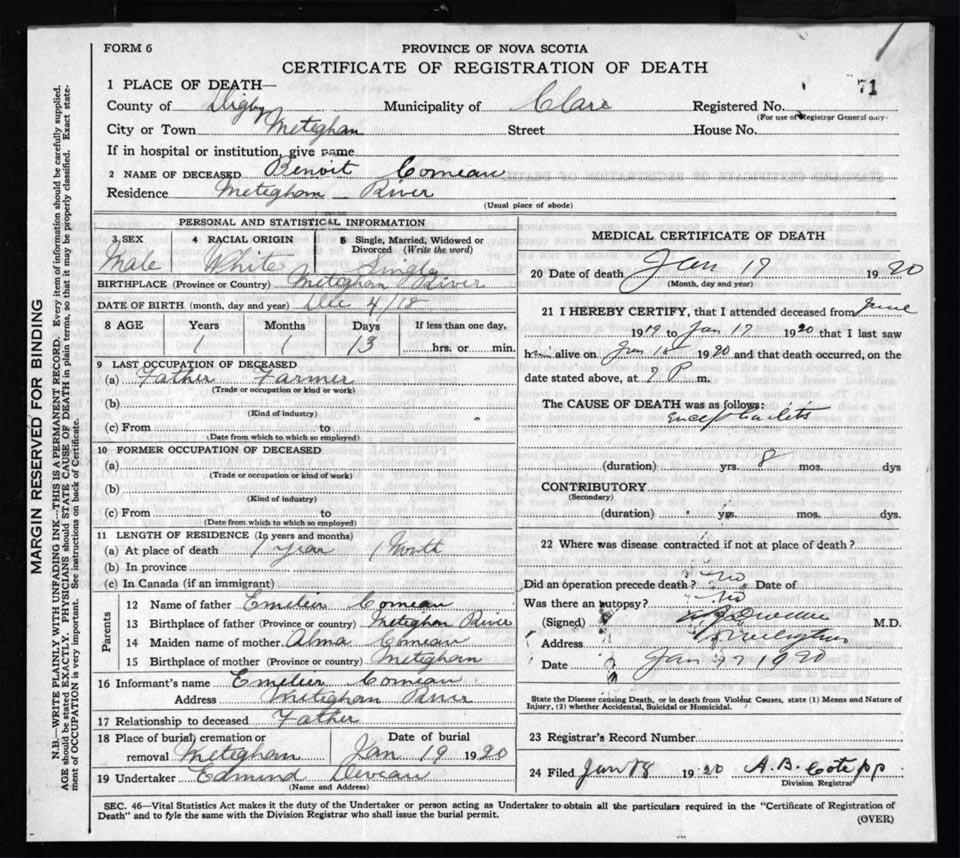 FORM 6
PROVINCE OF NOVA SCOTIA
CERTIFICATE OF REGISTRATION OF DEATH
1 PLACE OF DEATH—
71
County of Digby Municipality of Clare Registered No.
(For use of Registrar General only)
City or Town Meteghan Street House No.
If in hospital or institution, give name
2 NAME OF DECEASED Benoit Comeau
Residence Meteghan River
(Usual place of abode)
PERSONAL AND STATISTICAL INFORMATION
3 SEX 4 RACIAL ORIGIN 5 Single, Married, Widowed or Divorced (Write the word)
Male White Single
BIRTHPLACE (Province or Country) Meteghan River
DATE OF BIRTH (month, day and year) Dec 4/18
8 AGE Years Months Days If less than one day,
1 1 13 hrs. or min.
9 LAST OCCUPATION OF DECEASED
(a) Father Farmer
(Trade or occupation or kind or work)
(b)
(Kind of industry)
(c) From to
(Date from which to which so employed)
10 FORMER OCCUPATION OF DECEASED
(a)
(Trade or occupation or kind of work)
(b)
(Kind of industry)
(c) From to
(Date from which to which so employed)
11 LENGTH OF RESIDENCE (In years and months)
(a) At place of death 1 year 1 Month
(b) In province
(c) In Canada (if an immigrant)
Parents
12 Name of father Emelien Comeau
13 Birthplace of father (Province or country) Meteghan River
14 Maiden name of mother Alma Comeau
15 Birthplace of mother (Province or country) Meteghan
16 Informant's name Emelien Comeau
Address Meteghan River
17 Relationship to deceased Father
18 Place of burial, cremation or removal Date of burial
Meteghan Jan 19 1920
19 Undertaker Edmund Deveau
(Name and Address)
MEDICAL CERTIFICATE OF DEATH
20 Date of death Jan 17 1920
(Month, day and year)
21 I HEREBY CERTIFY, that I attended deceased from June
1919 to Jan 17 1920 that I last saw
him alive on Jan 1920 and that death occurred, on the
date stated above, at P m.
The CAUSE OF DEATH was as follows:
(duration) yrs. 8 mos. dys
CONTRIBUTORY
(Secondary)
(duration) yrs. mos. dys.
22 Where was disease contracted if not at place of death?
Did an operation precede death? no Date of
Was there an autopsy? no
(Signed) M.D.
Address
Date Jan 17 1920
State the Disease causing Death, or in death from Violent Causes, state (1) Means and Nature of
Injury, (2) whether Accidental, Suicidal or Homicidal.
23 Registrar's Record Number
24 Filed Jan 1920 A.B.
Division Registrar
SEC. 46—Vital Statistics Act makes it the duty of the Undertaker or person acting as Undertaker to obtain all the particulars required in the "Certificate of Registration of
Death" and to fyle the same with the Division Registrar who shall issue the burial permit.
(OVER)
MARGIN RESERVED FOR BINDING
N.B.—WRITE PLAINLY WITH UNFADING INK—THIS IS A PERMANENT RECORD. Every item of information should be carefully supplied.
AGE should be stated EXACTLY. PHYSICIANS should STATE CAUSE OF DEATH in plain terms, so that it may be properly classified. Exact state-
ment of OCCUPATION is very important. See instructions on back of Certificate.